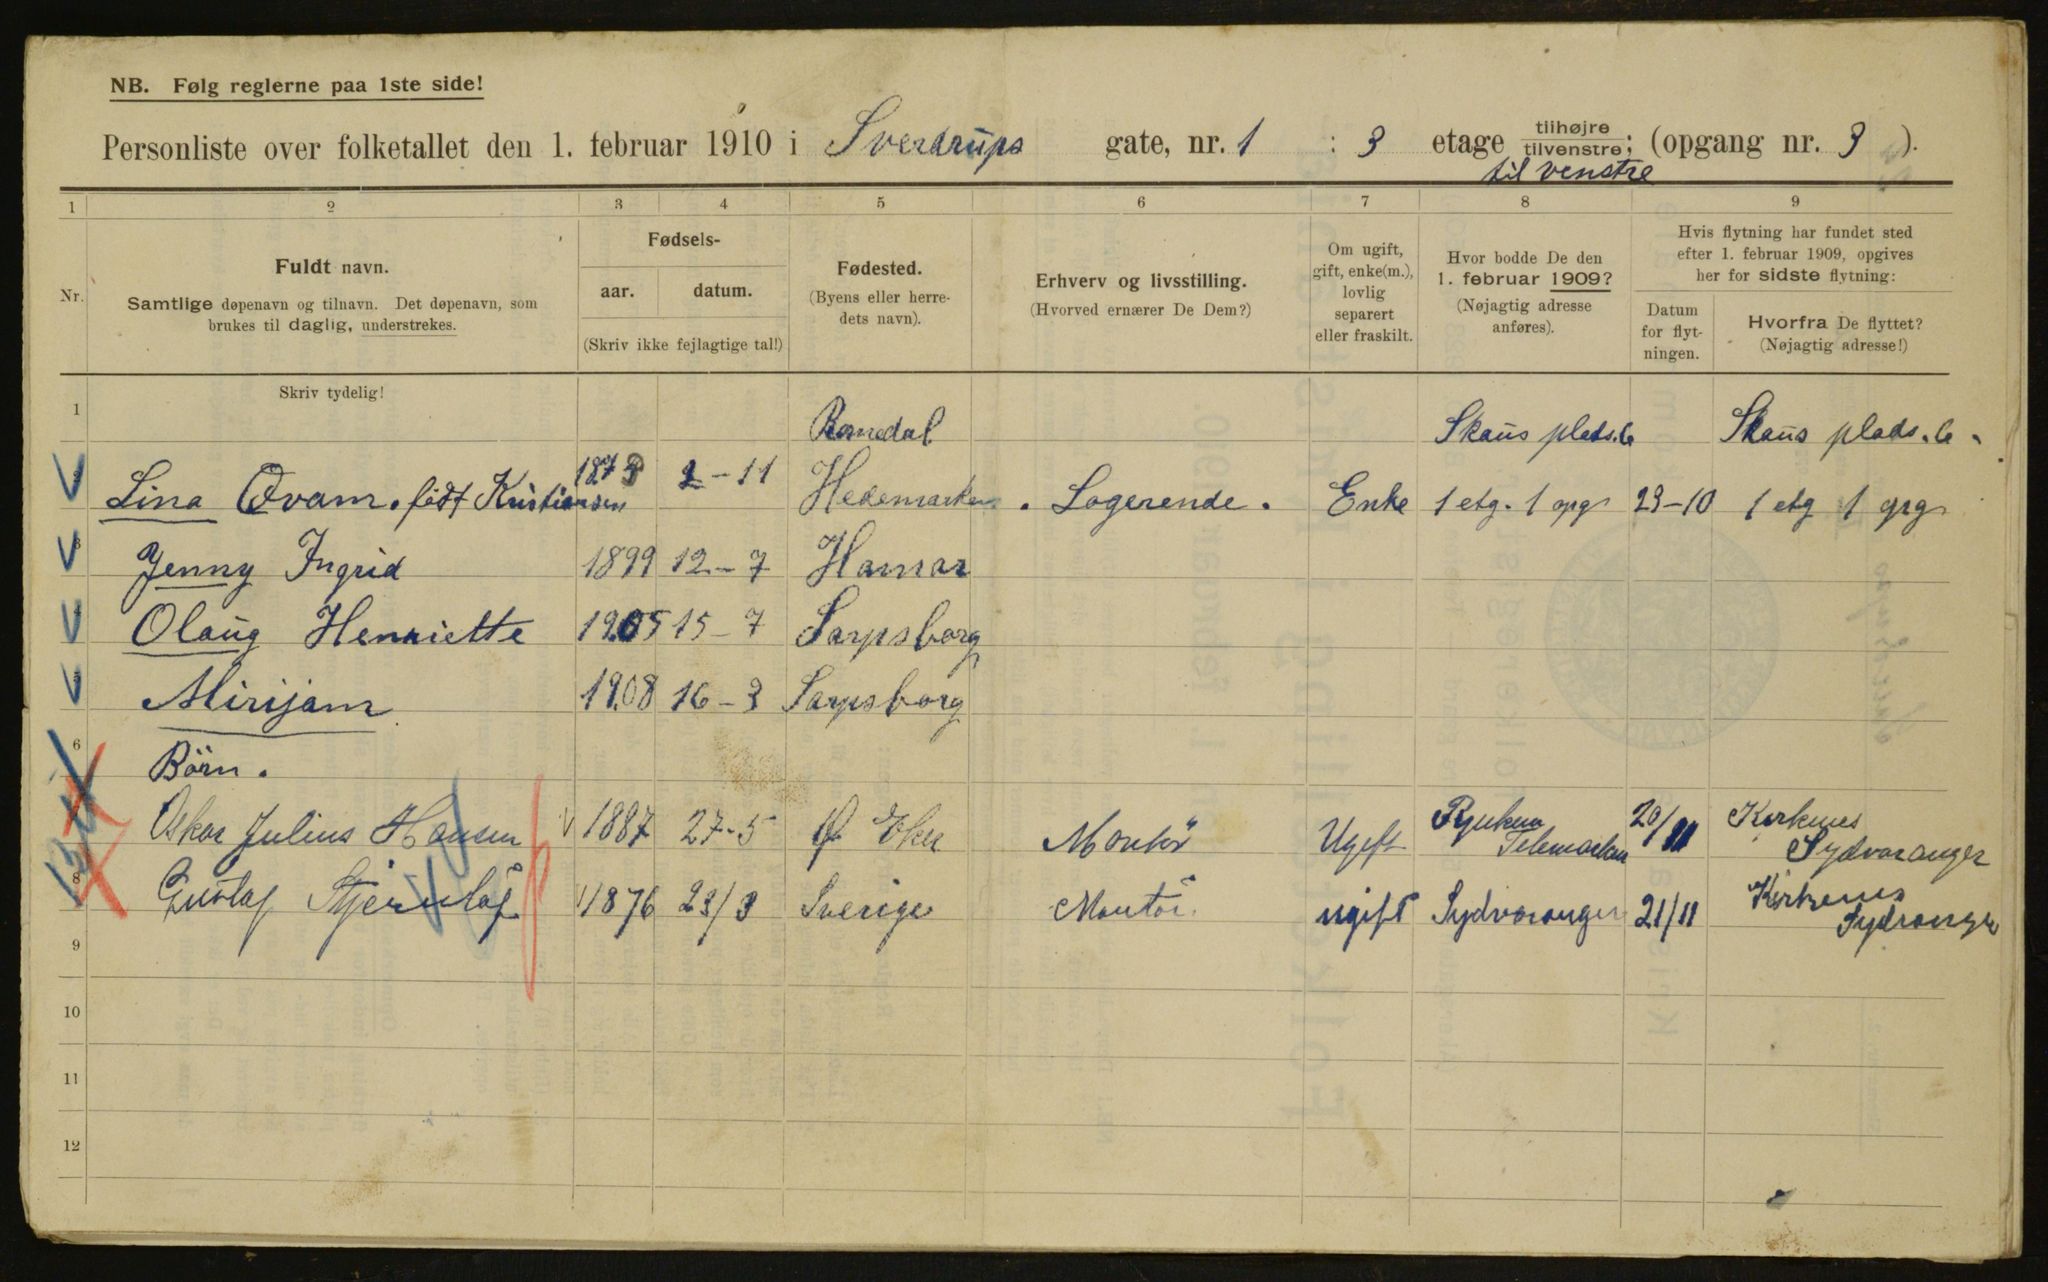 NB. Følg reglerne paa 1ste side!
Personliste over folketallet den 1. februar 1910 i Sverdrups gate, nr. 1 : 3 etage tilhøjre tilvenstre; (opgang nr. 3 ).
til venstre
1 2 3 4 5 6 7 8 9
Nr.
Fuldt navn.
Samtlige døpenavn og tilnavn. Det døpenavn, som
brukes til daglig, understrekes.
Fødsels-
aar. datum.
(Skriv ikke fejlagtige tal!)
Fødested.
(Byens eller herre-
dets navn).
Erhverv og livsstilling.
(Hvorved ernærer De Dem?)
Om ugift,
gift, enke(m.),
lovlig
separert
eller fraskilt.
Hvor bodde De den
1. februar 1909?
(Nøjagtig adresse
anføres).
Hvis flytning har fundet sted
efter 1. februar 1909, opgives
her for sidste flytning:
Datum
for flyt-
ningen.
Hvorfra De flyttet?
(Nøjagtig adresse!)
Skriv tydelig!
1 Romedal Skaus plads. 6 Skaus plads. 6.
Lina Qvam. født Kristiansen 1873 2-11 Hedemarken. Logerende. Enke 1 etg. 1 opg 23-10 1 etg 1 opg
3 Jenny Ingrid 1899 12-7 Hamar
4 Olaug Henriette 1905 15-7 Sarpsborg
5 Mirijam 1908 16-3 Sarpsborg
6 Børn.
Oskar Julius Hansen 1887 27-5 Ø Eker Montør Ugift Rjukan Telemarken 20/11 Kirkenes Sydvaranger
8 Gustaf 1876 23/3 Sverige Montör ugift Sydvaranger 21/11 Kirkenes
9
10
11
12